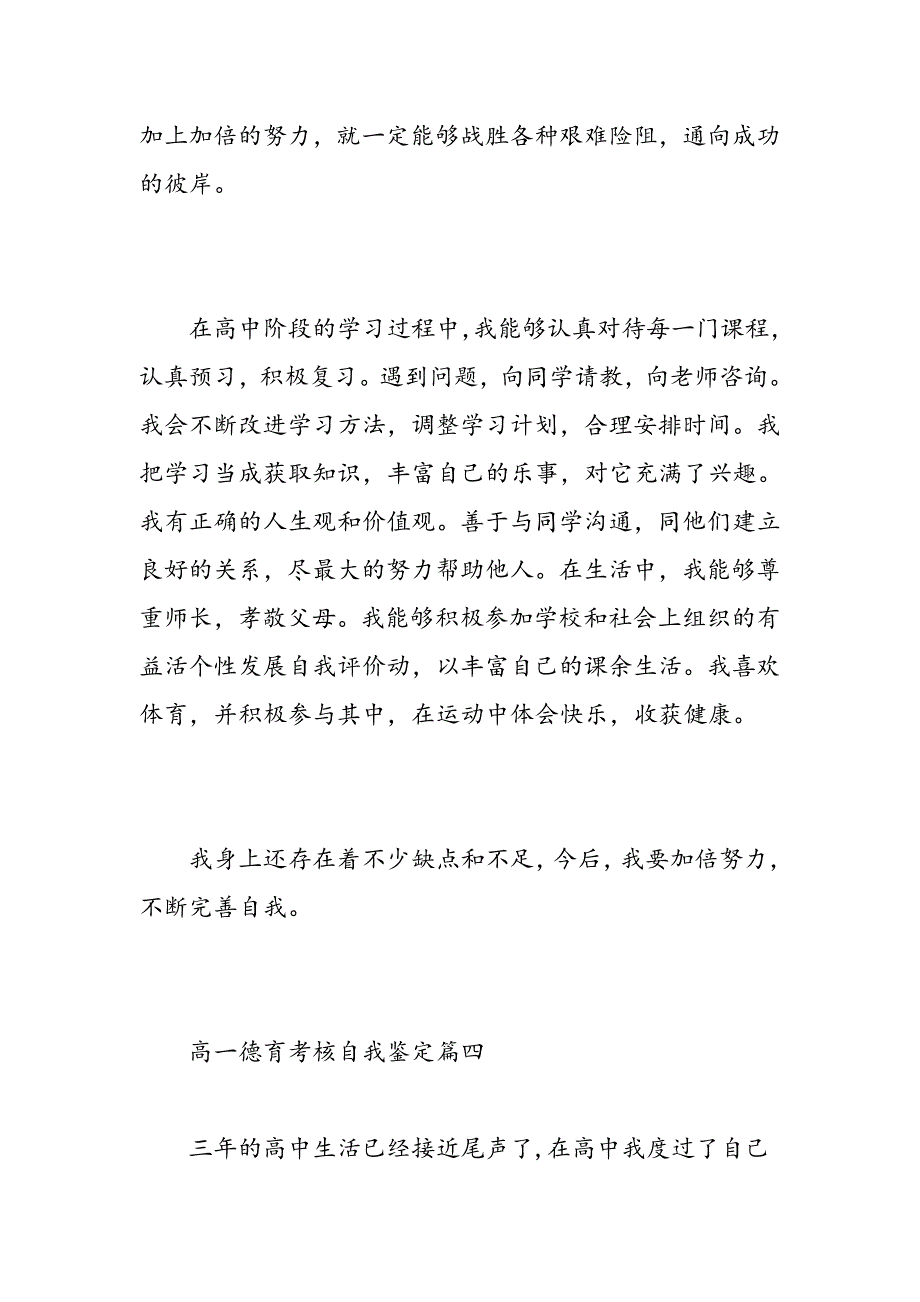 加上加倍的努力，就一定能够战胜各种艰难险阻，通向成功
的彼岸。
在高中阶段的学习过程中，我能够认真对待每一门课程，
认真预习，积极复习。遇到问题，向同学请教，向老师咨询。
我会不断改进学习方法，调整学习计划，合理安排时间。我
把学习当成获取知识，丰富自己的乐事，对它充满了兴趣。
我有正确的人生观和价值观。善于与同学沟通，同他们建立
良好的关系，尽最大的努力帮助他人。在生活中，我能够尊
重师长，孝敬父母。我能够积极参加学校和社会上组织的有
益活个性发展自我评价动，以丰富自己的课余生活。我喜欢
体育，并积极参与其中，在运动中体会快乐，收获健康。
我身上还存在着不少缺点和不足，今后，我要加倍努力，
不断完善自我。
高一德育考核自我鉴定篇四
三年的高中生活已经接近尾声了,在高中我度过了自己